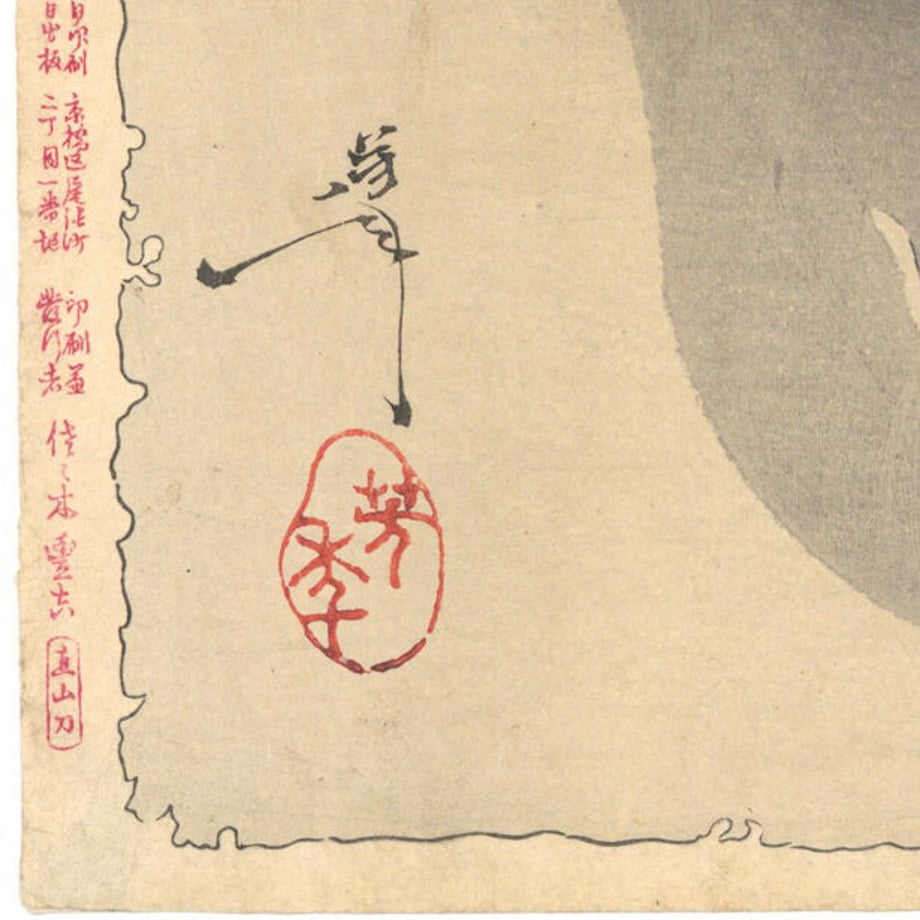 日印刷
日出板
京橋区尾張町
二丁目一番地
印刷兼
發行者
佐々木豊吉
直山刀
芳年
芳
季